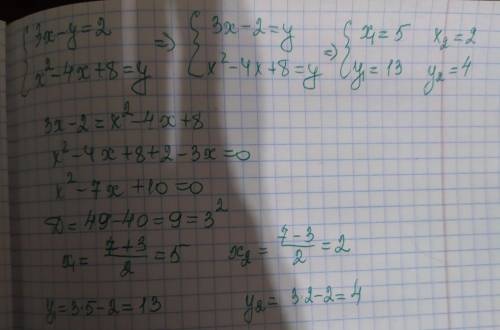 {3x-y=2 => {3x-2=y => {x₁=5 x₂=2
{x²-4x+8=y {x²-4x+8=y {y₁=13 y₂=4
3x-2=x²-4x+8
x²-4x+8+2-3x=0
x²-7x+10=0
D=49-40=9=3²
x₁=(7+3)/2=5 x₂=(7-3)/2=2
y=3·5-2=13 y₂=3·2-2=4